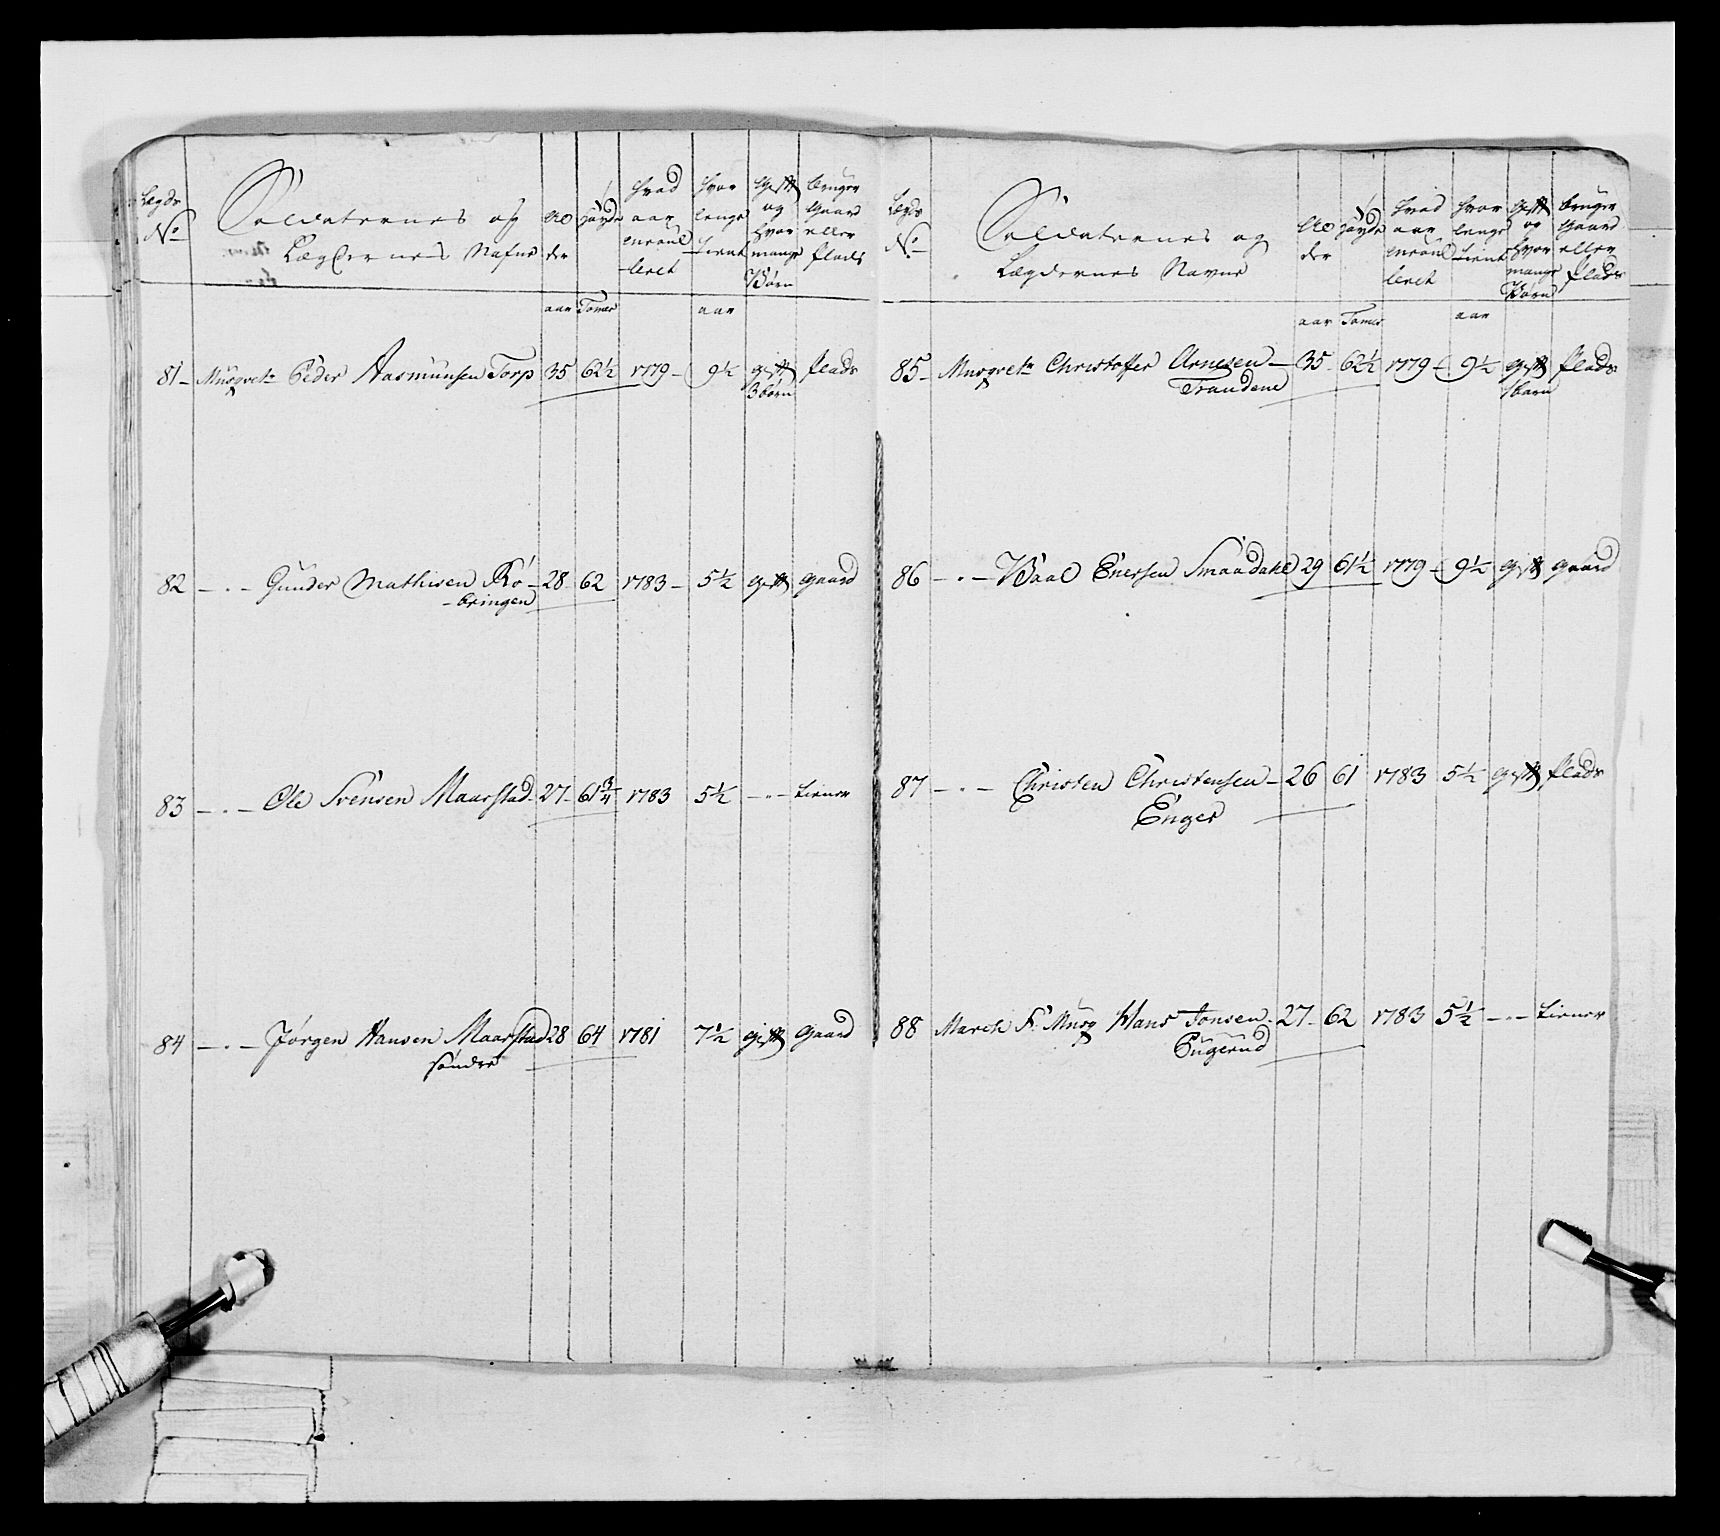 Lægds No
Soldaternes og Lægdernes Nafne
Alder
Høyde
hvad aar enroulleret
hvor lenge tient
gift og hvor mange Børn
bruger gaard eller plads
aar Tomer aar
81 - Musqvetr Peder Aasmundsen Torp 35 62½ 1779 - 9½ gift plads
3 børn
82 - " - Gunder Mathisen Rö- 28 62 1783 - 5½ gift gaard
-bringen
83 - " - Ole Svensen Maarstad 27 61¾ 1783 5½ - " - tiener
84 - " - Jørgen Hansen Maarstad 28 64 1781 7½ gift gaard
søndre
Lægds No
Soldaternes og Lægdernes Navne
Alder
Høyde
hvad aar enroulleret
hvor lenge tient
gift og hvor mange Børn
bruger gaard eller plads
aar Tomer aar
85 - Musqvetr Christoffer Arnesen - 35 62½ 1779 - 9½ gift plads
Trandene 1 barn
86 - " - Paal Enersen Smaadahl 29 61½ 1779 - 9½ gift gaard
87 - " - Christen Christensen - 26 61 1783 5½ gift plads
Enger
88 March F: Musq Hans Jonsen 27 62 1783 5½ - " - tiener
Engerud